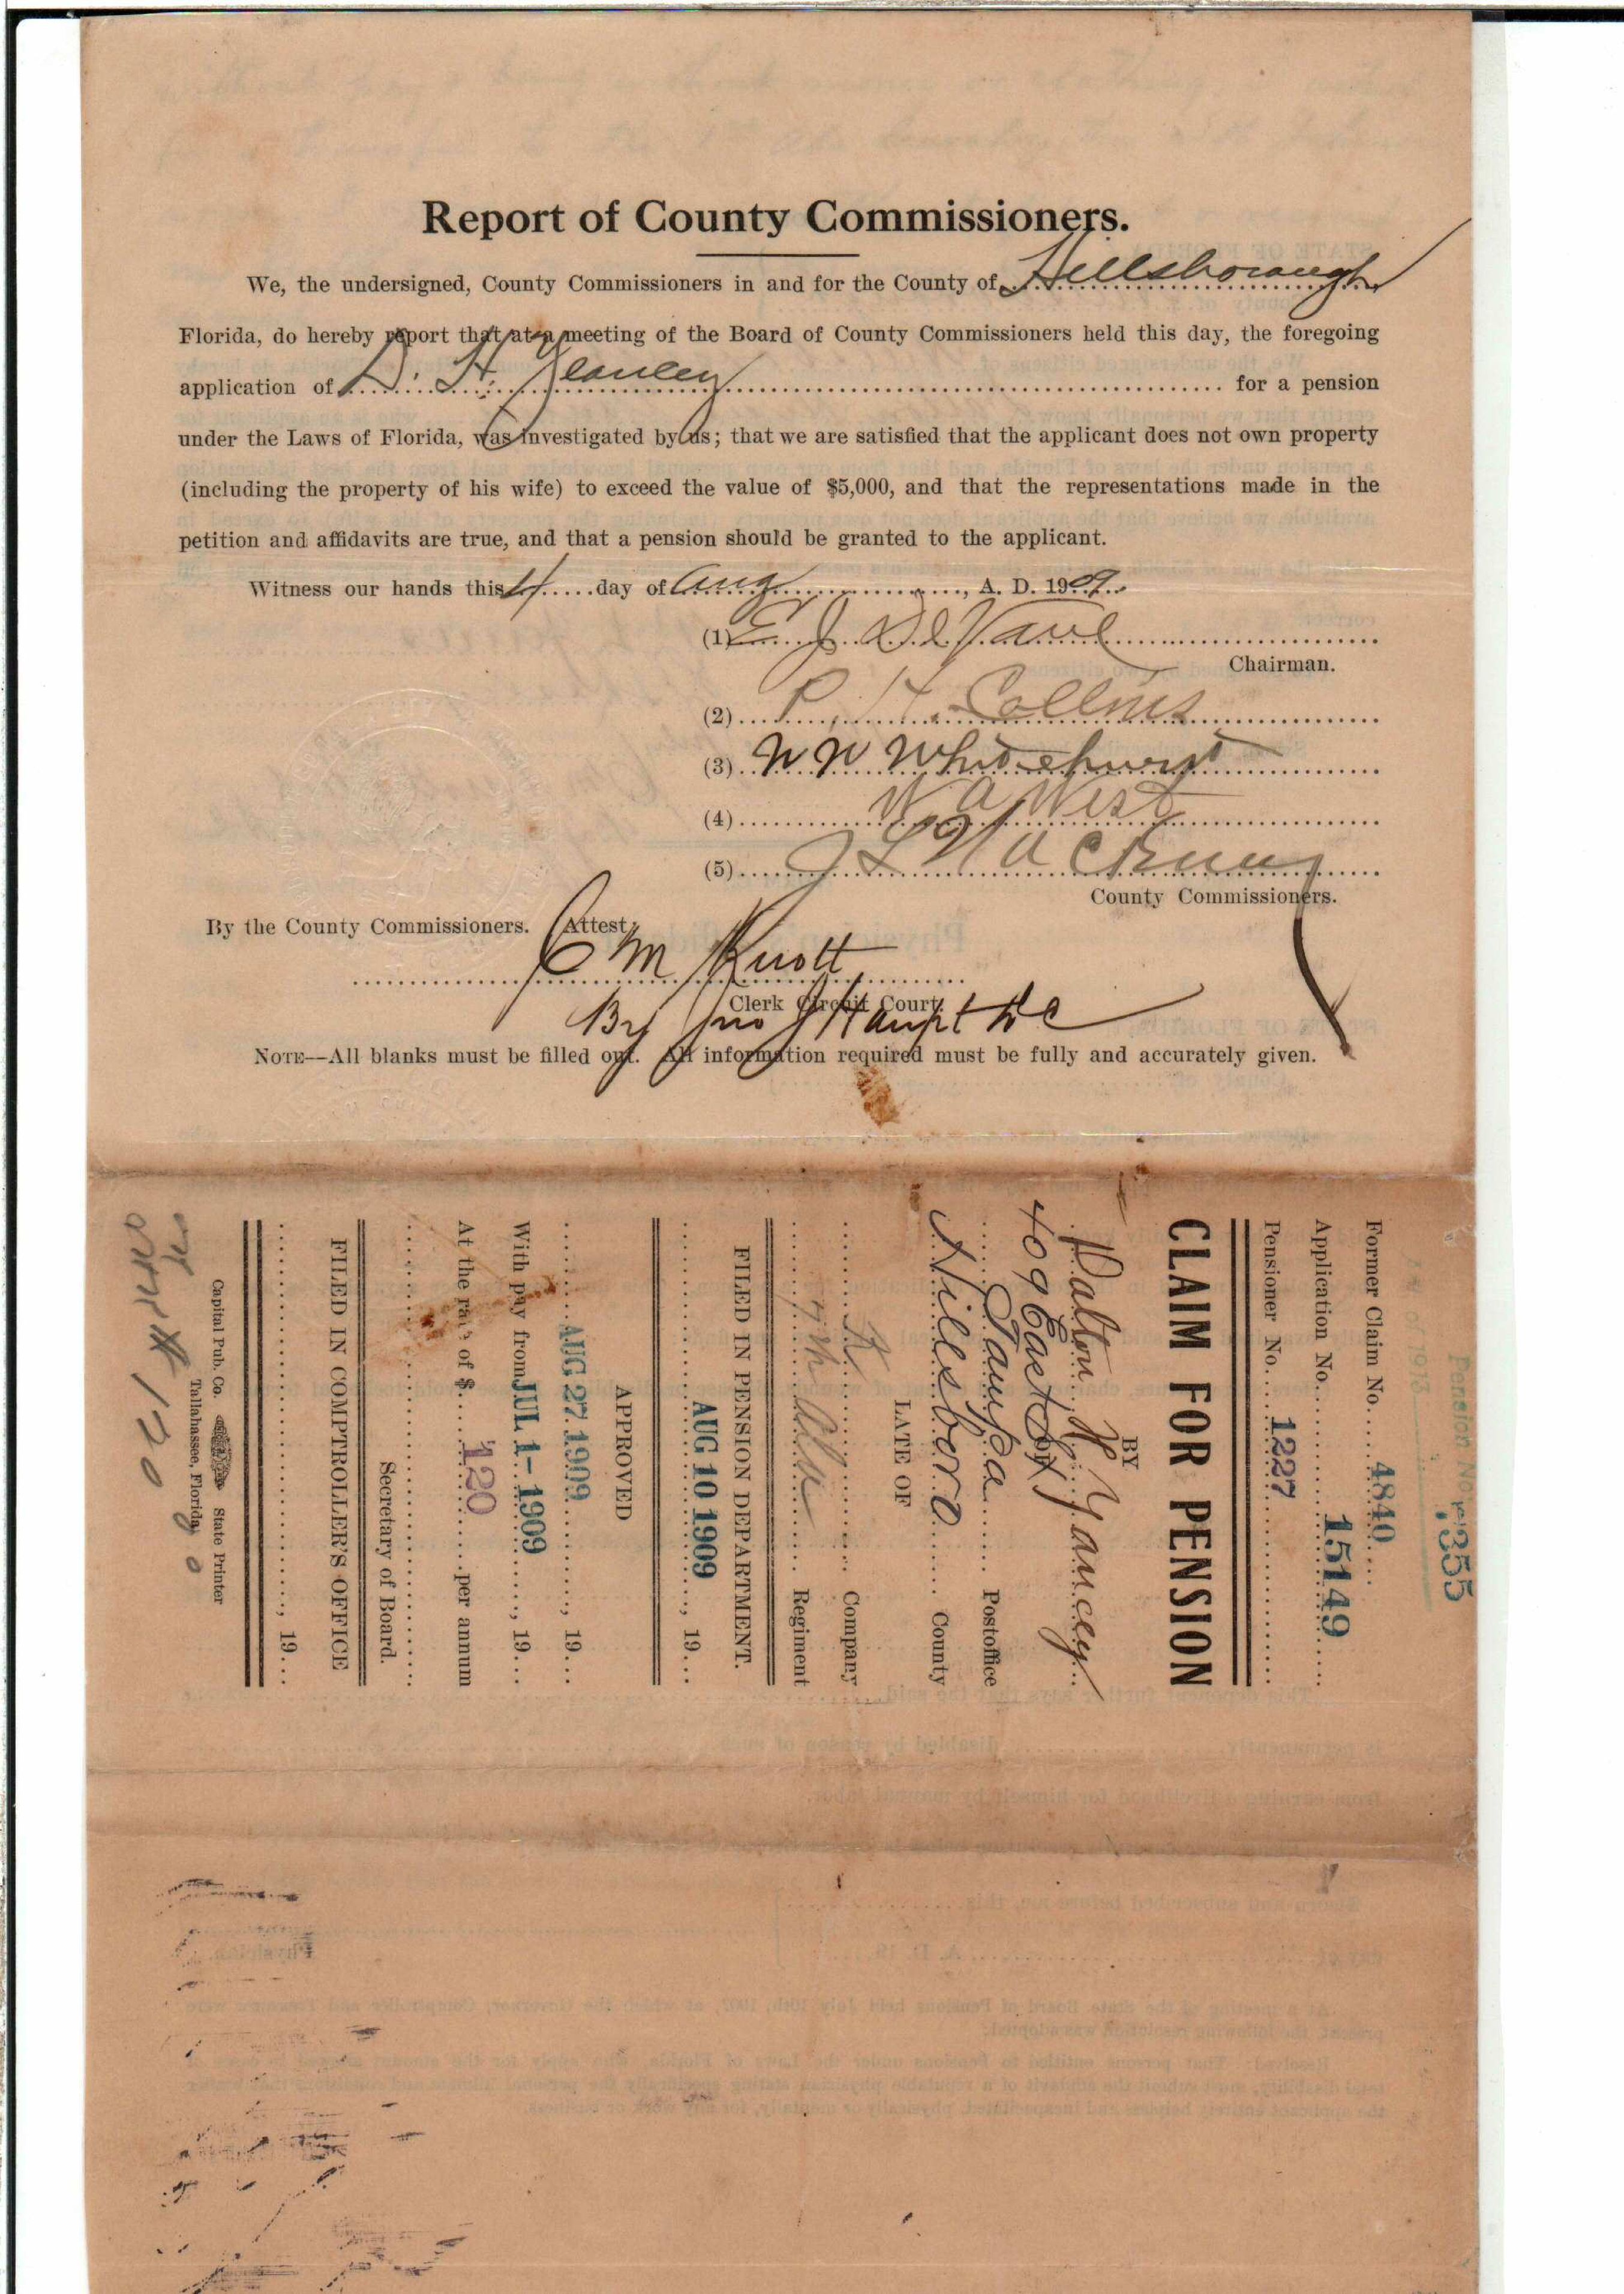 Report of County Commissioners.
We, the undersigned, County Commissioners in and for the County of Hillsborough
Florida, do hereby report that at a meeting of the Board of County Commissioners held this day, the foregoing
application of D. H. Yancey for a pension
under the Laws of Florida, was investigated by us; that we are satisfied that the applicant does not own property
(including the property of his wife) to exceed the value of $5,000, and that the representations made in the
petition and affidavits are true, and that a pension should be granted to the applicant.
Witness our hands this 4 day of Aug, A. D. 1909.
(1) E J DeVane
Chairman.
(2) P. H. Collins
(3) W W Whitehurst
(4) W A West
(5) J L
County Commissioners.
By the County Commissioners. Attest:
C M Knott
Clerk Circuit Court.
By Jno J Haupt DC
NOTE--All blanks must be filled out. All information required must be fully and accurately given.
Pension No. 7355
Former Claim No. 4840
Application No. 15149
Pensioner No. 1227
CLAIM FOR PENSION
BY
Dalton H Yancey
409 East St
Tampa Postoffice
Hillsboro County
LATE OF
K Company
7th Ala Regiment
FILED IN PENSION DEPARTMENT.
AUG 10 1909, 19
APPROVED
AUG 27 1909, 19
With pay from JUL 1- 1909, 19
At the rate of $ 120 per annum
Secretary of Board.
FILED IN COMPTROLLER'S OFFICE
, 19
Capital Pub. Co. State Printer
Tallahassee, Florida